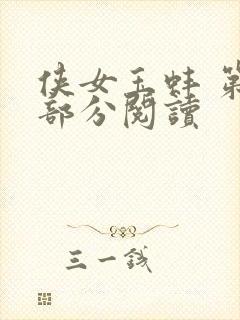 侠女玉蚌 第
部分阅读
三一钱